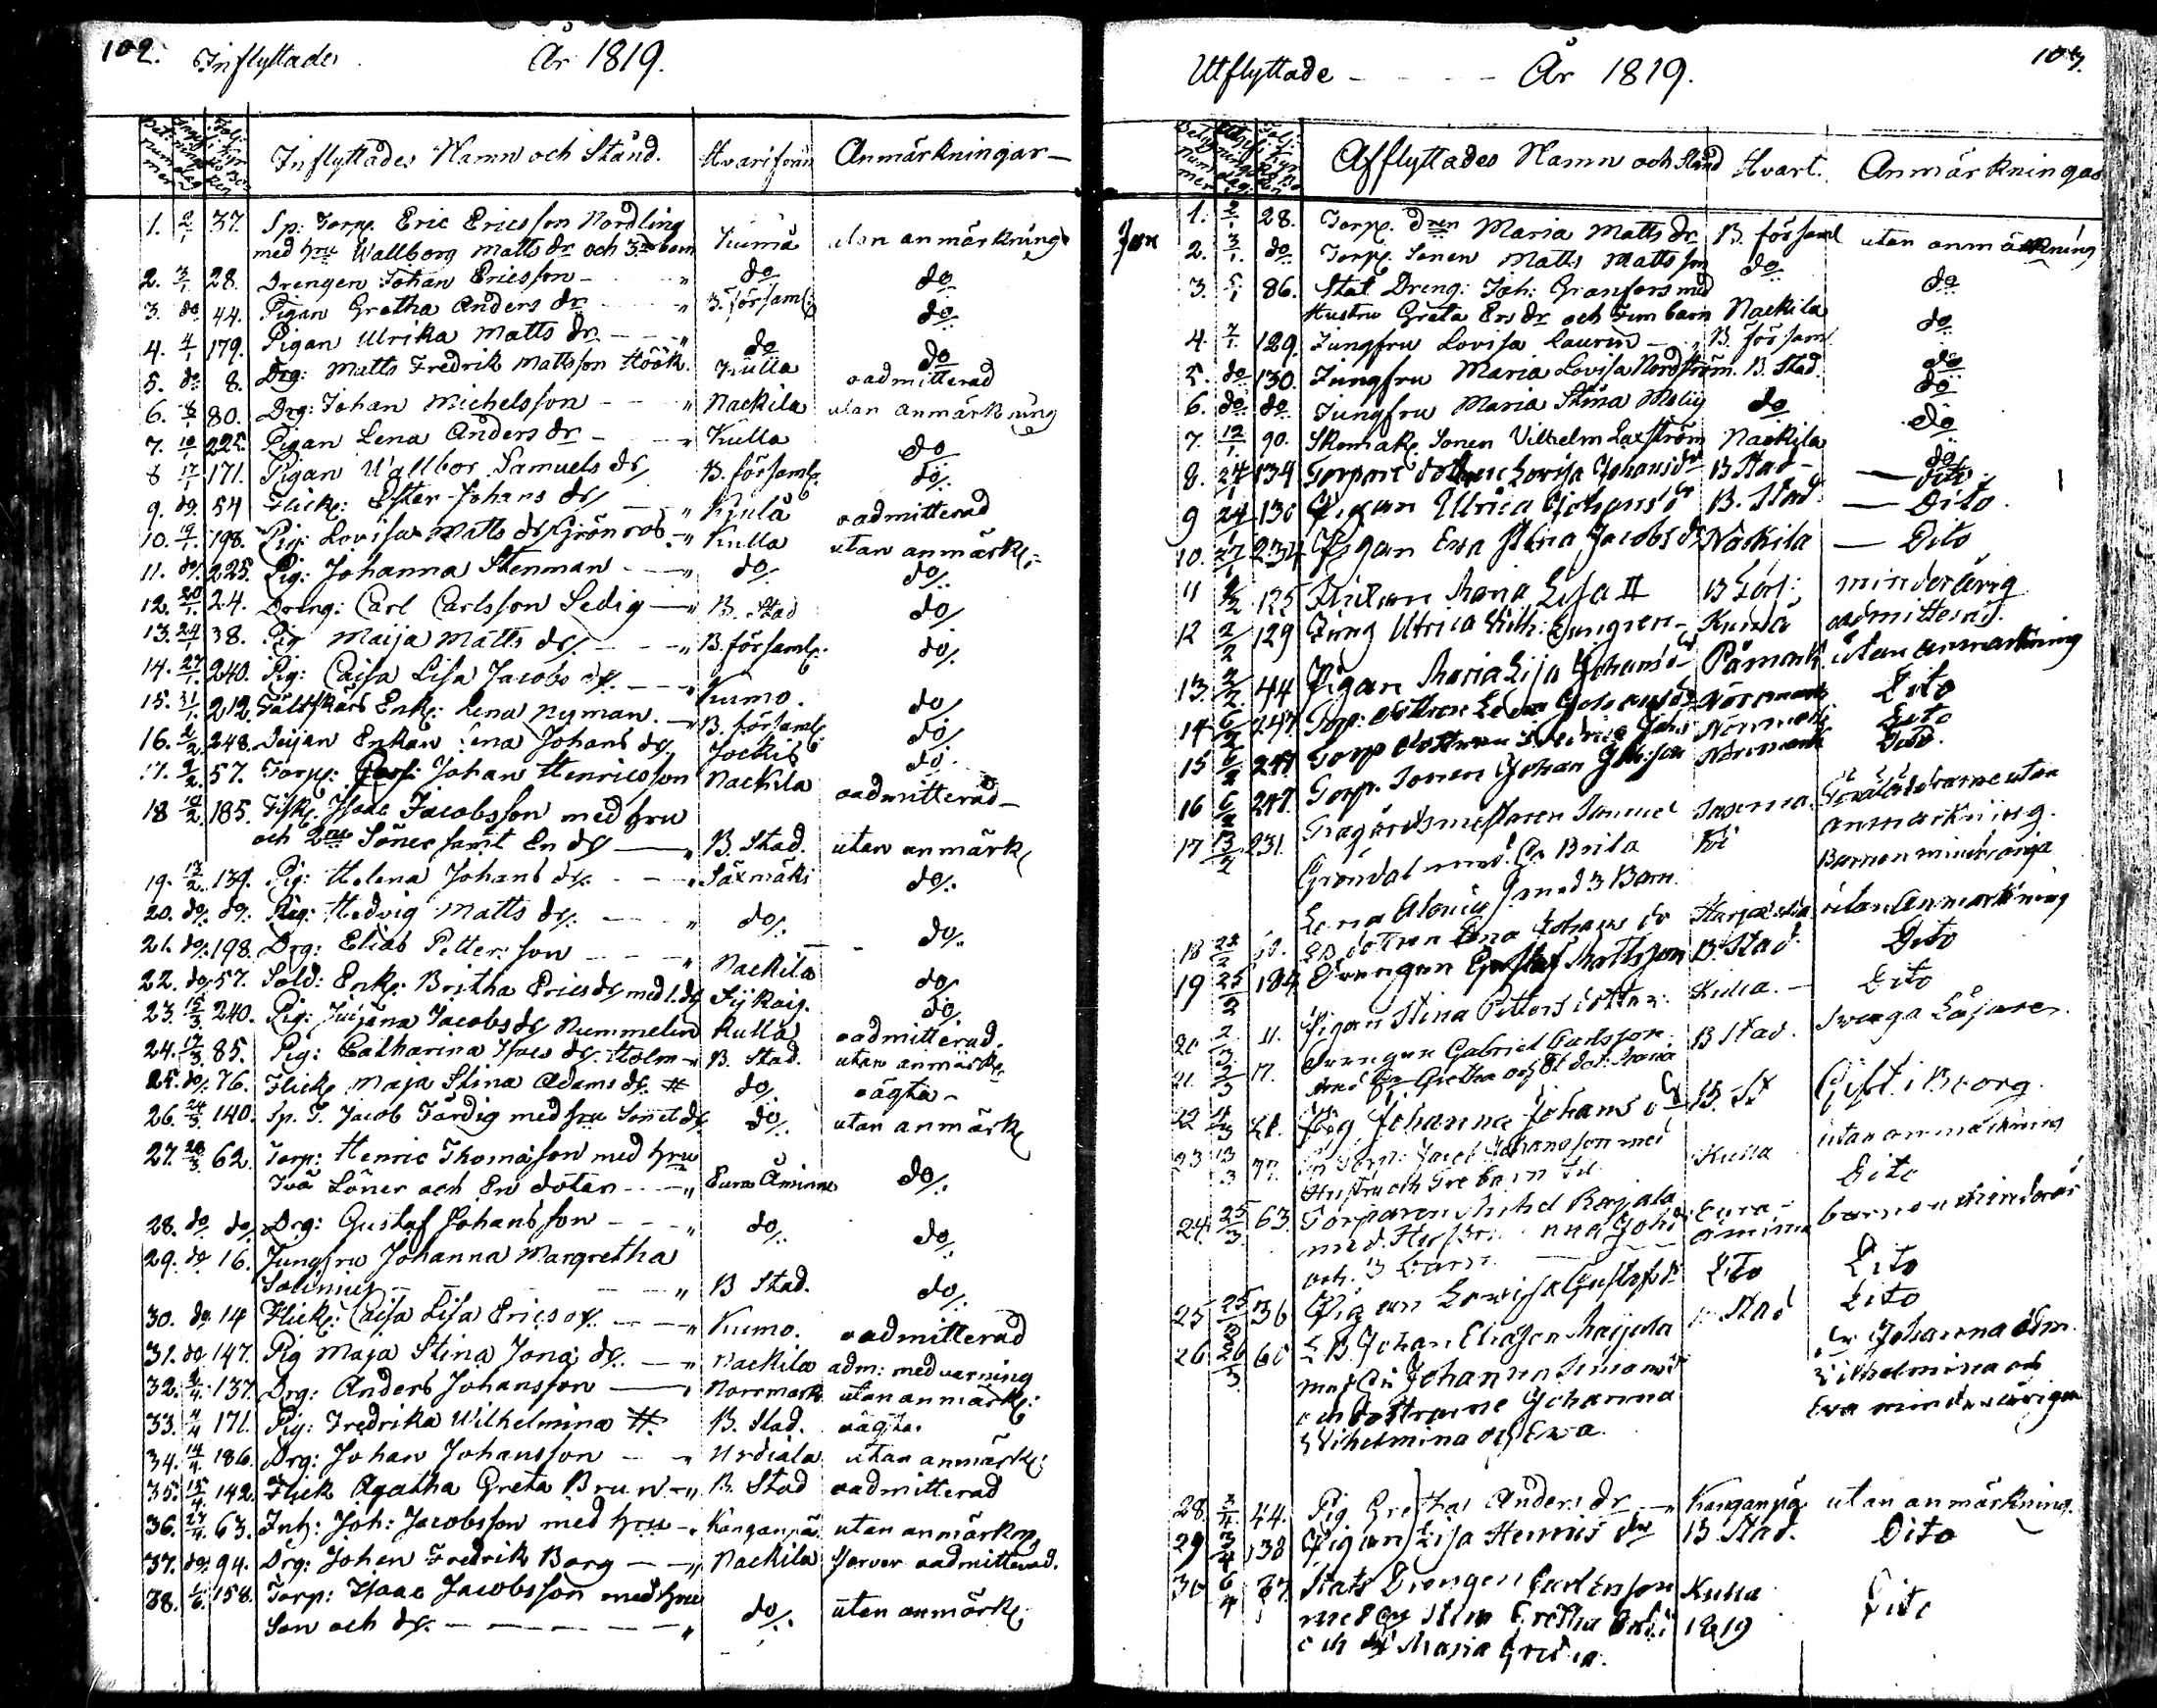 102. Inflyttade År 1819.
Inflyttades Namn och Stånd. Hvarifrån Anmärkningar
1. 2/1 37. Sp: Torp. Eric Ericsson Nordling
med hru Wallborg Matts dr och 3ne barn Kiumå utan anmärkning
2. 3/1 28. Drengen Johan Ericsson - " do do
3. do 44. Pigan Gretha Anders dr - " B. församl: do
4. 4/1 179. Pigan Ulrika Matts dr - - " do do
5. do 8. Drg: Matts Fredrik Mattsson Höök. Kulla oadmitterad
6. 8/1 80. Drg: Johan Michelsson - - " Nackila utan anmärkning
7. 10/1 225. Pigan Lena Anders dr - - " Kulla do
8 17/1 171. Pigan Wallbor Samuels dr B. församl. do
9. do 54 Flick: Ester Johans dr - " Kjula oadmitterad
10. 19/1 198. Pig: Lovisa Matts dr Grönros - " Kulla utan anmärk:
11. do 225. Pig: Johanna Stenman - - " do do
12. 20/1 24. Dreng: Carl Carlsson Ledig - " B. Stad do
13. 24/1 38. Pig Maija Matts dr - - " B. församl. do
14. 27/1 240. Pig: Caisa Lisa Jacobs dr - - " Kumo. do
15. 31/1 212. Fältskärs Enk: Lena Nyman. - B. församl. do
16. 2/2 248. Enkan Johans dr Jockis do
17. 2/2 57. Torp: Johan Henricsson Nackila oadmitterad
18 10/2 185. Fisk. Isaac Jacobsson med hru
och 2ne Söner samt En dr - " B. Stad. utan anmärk
19. 13/2 139. Pig: Helena Johans dr - - " Säxmäki do
20. do do Pig: Hedvig Matts dr - - " do do
21. do 198. Drg: Elias Petterson - - " Nackila do
22. do 57. Sold: Enk. Britha Erics dr med 1. dr Sijkais. do
23. 15/3 240. Pig: Juljana Jacobs dr Nummelin Kulla oadmitterad.
24. 17/3 85. Pig: Catharina Isacs dr Holm - " B. Stad. utan anmärk
25. do 76. Flick Maja Stina Adams dr # do oägta -
26. 24/3 140. Sp. T. Jacob Färdig med hru Son et dr do utan anmärk
27. 28/3 62. Torp: Henric Thomasson med hru
Två Söner och En dotter - - " Eura Åminne do
28. do do Drg: Gustaf Johansson - - " do do
29. do 16. Jungfru Johanna Margretha
- - " B Stad. do
30. do 14 Flick: Caisa Lisa Erics dr - - " Kumo. oadmitterad
31. do 147. Pig Maja Stina Jona dr. - " Nackila adm: med varning
32. 2/4 137. Drg: Anders Johansson - Norrmark utan anmärk:
33. 4/4 171. Pig: Fredrika Wilhelmina # B. Stad. oägta.
34. 14/4 186. Drg: Johan Johansson - " Urdiala utan anmärk:
35. 15/4 142. Flick Agatha Greta Brun - " B Stad oadmitterad
36. 27/4 63. Inh: Joh: Jacobsson med hru - Kanganpä. utan anmärkng
37. do 94. Drg: Johan Fredrik Borg - - " Nackila oadmitterad.
38. 158. Torp: Isaac Jacobsson med hru
Son och dr - - - " do utan anmärk:
Utflyttade - - - År 1819. 103.
Afflyttades Namn och Stånd Hvart. Anmärkningar
Jan 1. 2/1 28. Torp. dren Maria Matts dr B. församl utan anmärkning
2. 3/1 do Torp. Sonen Matts Mattsson do do
3. 5/1 86. Stat Dreng: Joh: Granfors med
Hustru Greta Ers dr och Fem barn Nackila do
4. 7/1 129. Jungfru Lovisa Laurin - B. församl do
5. do 130. Jungfru Maria Lovisa Nordström. B. Stad. do
6. do do Jungfru Maria Stina do do
7. 12/1 90. Skomak. Sonen Vilhelm Laxström Nackila do
8. 24/1 134 Torpare dottren Lovisa Johans dr B Stad - - Dito
9 24/1 130 Pigan Ulrica Johans dr B. Stad - Dito.
10. 27/1 234 Pigan Eva Stina Jacobs dr Nackila - Dito
11 2/2 125 Flickan Maria Lisa # B Förs: minderårig
12 2/2 129 Jung Ulrica Wilh: Ljungren - Kumå oadmitterad.
13. 2/2 44 Pigan Maria Lisa Johans dr Påmark utan anmärkning
14 6/2 247 Torp: dottren Lena Johans dr Norrmark Dito
15 6/2 247 Torp dottren Fredrica Johans Norrmark Dito
16 6/2 247. Torp. Sonen Johan Johsson Norrmark Dito.
17 13/2 231. Trägårdsmästaren Samuel Föräldrarne utan
Gröndal med hu Brita anmärkning.
Lena med 3 Barn. Barnen minderåriga
18 22/2 dotren Lena Johans dr Harjavalta utan Anmärkning
19 25/2 184 Drengen Gustaf Mattsson B Stad. Dito
20 2/3 11. Pigan Stina Petters dotter. Kulla. - Dito
21. 2/3 17. Drengen Gabriel Carlsson. B Stad. Svaga Läsare.
med hu Gretha och
22 4/3 Pig Johanna Johans dr B. St Gift i B borg.
23 13/3 77. Sp Torp: Jacob Johansson med
Hustru och Tre barn Kulla utan anmärkning
24. 25/3 63. Torparen Michel Rajala Eura- Dito
med Hustru Joh: dr åminne barnen minderår
och 3 barn
25 25/3 36 Pigan Lovisa Gustafs dr Dito Dito
26 26/3 60 Johan Eliasson Maijala Stad Dito
med hu Johanna Simons dr Johanna adm.
och döttrarne Johanna Vilhelmina och
Wilhelmina och Eva. Eva minderåriga
28. 3/4 44. Pig Gretha Anders dr - " Kanganpä utan anmärkning.
29 3/4 138 Pigan Lisa Henrics dr B Stad. Dito
30 6/4 37. Stats Drengen Carl Ersson Kulla
med hu Gretha 1819 Dito
och dr Maria